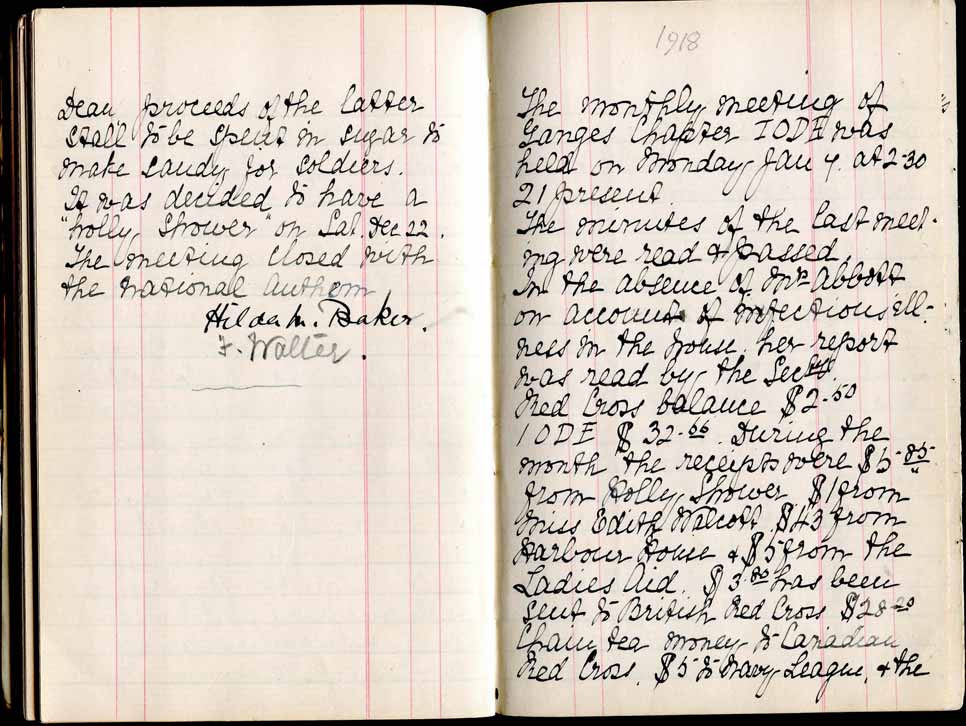 Dean, proceeds of the latter
stall to be spent in sugar to
make candy for soldiers.
It was decided to have a
"holly shower" on Sat. Dec 22.
The meeting closed with
the national anthem
Hilda M. Baker.
F. Walter.
1918
The monthly meeting of
Ganges Chapter IODE was
held on Monday Jan 7. at 2-30
21 present.
The minutes of the last meet-
ing were read & passed.
In the absence of Mrs Abbott
on account of infectious ill-
ness in the house, her report
was read by the Secty.
Red Cross balance $2-50
IODE $32-66. During the
month the receipts were $5-85
from Holly Shower $1 from
Miss Edith Walcott $43 from
Harbour House & $5 from the
Ladies Aid. $3.80 has been
sent to British Red Cross $28-20
Chain tea money to Canadian
Red Cross, $5 to Navy League, & the